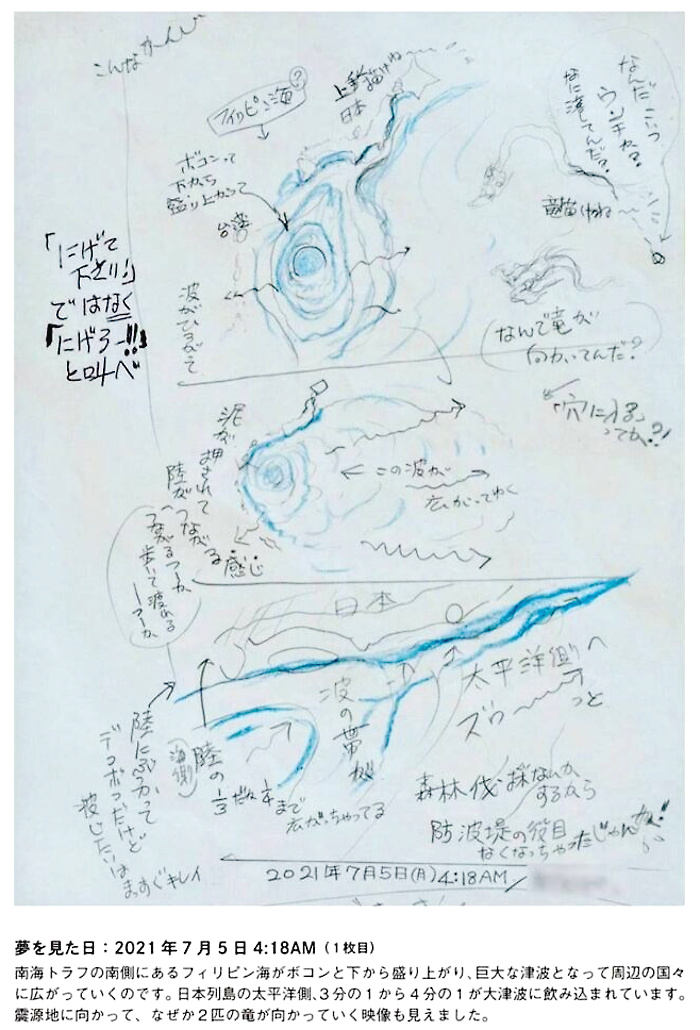 こんなかんじ
上手く描けね
日本
フィリピン海?
ボコンって
下から
盛り上がって
台湾
波がひろがって
「にげて
下さい!」
ではなく
「にげろー!!」
と叫べ
なんだこいつ
ウンチか?
なに渡ってんだ?
竜描けねー
なんで竜が
向かってんだ?
「穴に入る」
ってか?!
泥が押されて
陸がつながる
感じ
つながるっつーか
歩いて渡れる
ーつーか
この波が
広がってゆく
日本
太平洋側へ
ズウーーーっと
波の帯が
陸にぶつかって
デコボコだけど
波じたいは
まっすぐキレイ
(海側)
陸の
1/3だね
1/4まで
広がっちゃってる
森林伐採なんか
するから
防波堤の役目
なくなっちゃったじゃんか!!
2021年7月5日(月)4:18AM
夢を見た日:2021年7月5日4:18AM(1枚目)
南海トラフの南側にあるフィリピン海がボコンと下から盛り上がり、巨大な津波となって周辺の国々
に広がっていくのです。日本列島の太平洋側、3分の1から4分の1が大津波に飲み込まれています。
震源地に向かって、なぜか2匹の竜が向かっていく映像も見えました。